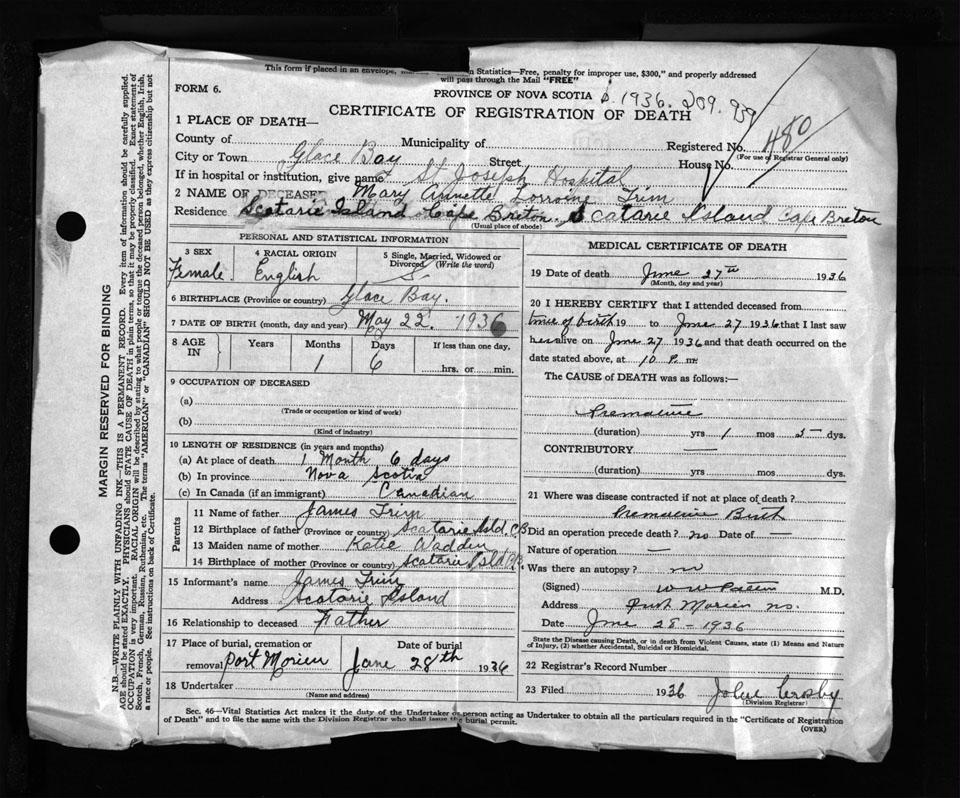 This form if placed in an envelope, Statistics—Free, penalty for improper use, $300," and properly addressed
will pass through the Mail "FREE"
FORM 6.
PROVINCE OF NOVA SCOTIA 1936. 209. 959
CERTIFICATE OF REGISTRATION OF DEATH
480
1 PLACE OF DEATH—
County of Municipality of Registered No.
(For use of Registrar General only)
City or Town Glace Bay Street House No.
If in hospital or institution, give name St Joseph Hospital
2 NAME OF DECEASED Mary Annette Lorraine Trim
Residence Scatarie Island Cape Breton. Scatarie Island Cape Breton
(Usual place of abode)
PERSONAL AND STATISTICAL INFORMATION
3 SEX Female. 4 RACIAL ORIGIN English 5 Single, Married, Widowed or Divorced (Write the word) S
6 BIRTHPLACE (Province or country) Glace Bay.
7 DATE OF BIRTH (month, day and year) May 22. 1936
8 AGE IN Years Months Days If less than one day,
1 6 hrs. or min.
9 OCCUPATION OF DECEASED
(a)
(Trade or occupation or kind of work)
(b)
(Kind of industry)
10 LENGTH OF RESIDENCE (in years and months)
(a) At place of death 1 Month 6 days
(b) In province Nova Scotia
(c) In Canada (if an immigrant) Canadian
Parents
11 Name of father James Trim
12 Birthplace of father (Province or country) Scatarie Isld. C.B
13 Maiden name of mother Katie Wadden
14 Birthplace of mother (Province or country) Scatarie Isld C.B.
15 Informant's name James Trim
Address Scatarie Island
16 Relationship to deceased Father
17 Place of burial, cremation or Date of burial
removal Port Morien June 28th 1936
18 Undertaker
(Name and address)
MEDICAL CERTIFICATE OF DEATH
19 Date of death June 27th 1936
(Month, day and year)
20 I HEREBY CERTIFY that I attended deceased from
time of birth 19 to June 27 1936 that I last saw
her alive on June 27 1936 and that death occurred on the
date stated above, at 10 P. m.
The CAUSE of DEATH was as follows:—
Premature
(duration) yrs 1 mos 5 dys.
CONTRIBUTORY —
(duration) yrs. mos. dys.
21 Where was disease contracted if not at place of death?
Premature Birth
Did an operation precede death? no Date of —
Nature of operation —
Was there an autopsy? no
(Signed) M.D.
Address Port Morien NS.
Date June 28 - 1936
State the Disease causing Death, or in death from Violent Causes, state (1) Means and Nature
of Injury, (2) whether Accidental, Suicidal or Homicidal.
22 Registrar's Record Number
23 Filed 1936 Crosby
(Division Registrar)
Sec. 46—Vital Statistics Act makes it the duty of the Undertaker or person acting as Undertaker to obtain all the particulars required in the "Certificate of Registration
of Death" and to file the same with the Division Registrar who shall issue the burial permit.
(OVER)
MARGIN RESERVED FOR BINDING
N.B.—WRITE PLAINLY WITH UNFADING INK—THIS IS A PERMANENT RECORD. Every item of information should be carefully supplied.
AGE should be stated EXACTLY. PHYSICIANS should STATE CAUSE OF DEATH in plain terms, so that it may be properly classified. Exact statement of
OCCUPATION is very important. RACIAL ORIGIN will be described by stating to what people or tongue the deceased person belonged, whether English, Irish,
Scotch, French, German, Russian, Ruthenian, etc. The terms "AMERICAN" or "CANADIAN" SHOULD NOT BE USED as they express citizenship but not
a race or people. See instructions on back of Certificate.